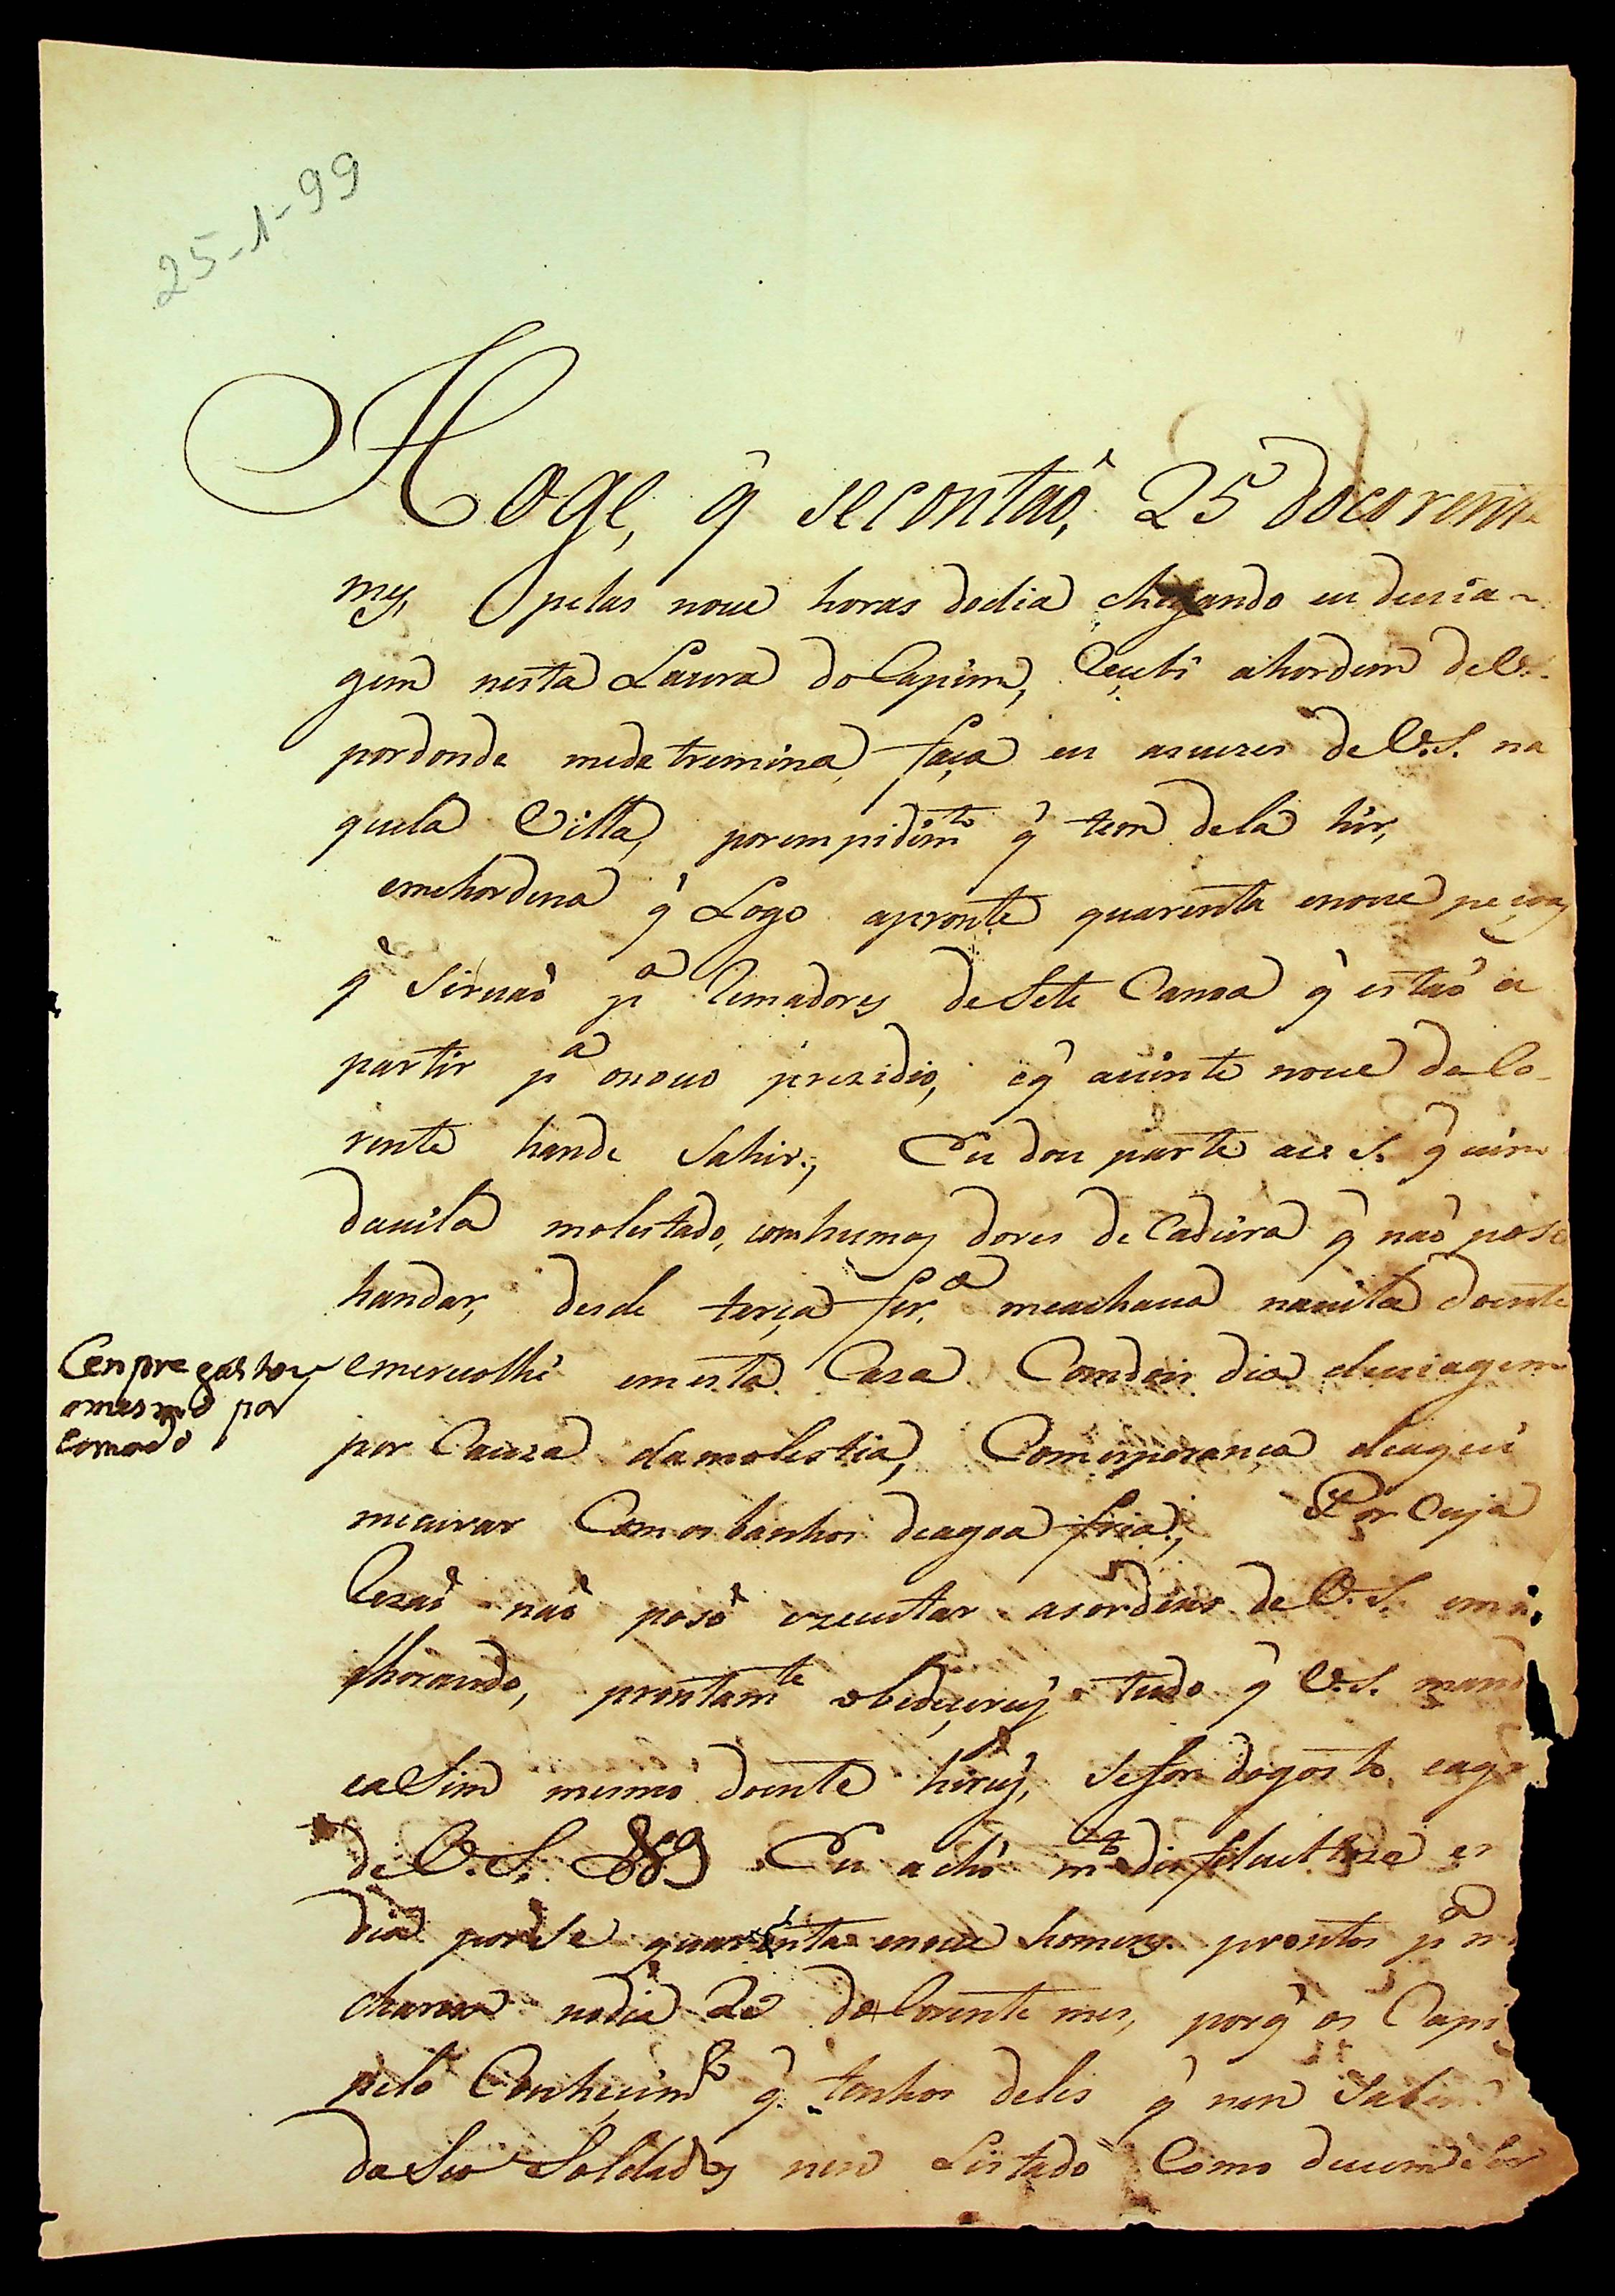 25-1-99
Hoge, q̃ secontaõ, 25 docorente
mes, pelas noue horas dodia chegando eu deuia-
gem nesta Laura do Capim, Recubi ahordem de V.S.
pordonde medatremina, faça eu asuezes de V.S. na
quela Villa, porempidim.to q̃ tem dela hir,
emehordena q̃ Logo apronte quarenta enoue peçoas
q̃ Siruaõ p.a Remadores deSete Canoa q̃ estaõ a
partir p.a onouo prezidio, eq̃ auinte noue do Co-
rente hande Sahir., Eu dou parte aV.S. q̃ uim
dauila molestado, comhumas dores de Cadeira q̃ naõ poso
handar, desde terça fer.a meachaua nauila doente
emerecolhi emesta Casa Comdois dia deuiagem
por Cauza damolestia, Comesperança deaqui
mecurar Comosbanhos deagoa fria., Por cuja
Rezaõ naõ poso ezecutar asordens de V.S. em
lhorando, prontam.te obedeçerey tudo q̃ V.S. mand
eaSim mesmo doente hirey, Sefor dogosto, eag
de V.S. Eu acho m.to
dia porSe quarenta enoue homens prontos p.a m
charem nodia 29 doCorente mes, porq̃ os Capi
pelo Conheçim.to q̃ tenho deles q̃ nem Sabem
deSeo Soldados nem Listado Como deuem Ser
Cenpre gastou
omesmo por
comodo